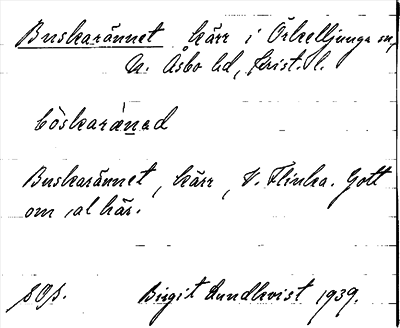 Buskarännet kärr i Örkelljunga sn,
N. Åsbo hd, Krist. l.
böskaränad
Buskarännet, kärr, V. Flinka. Gott
om al här.
sOp. Birgit Lundkvist 1939.